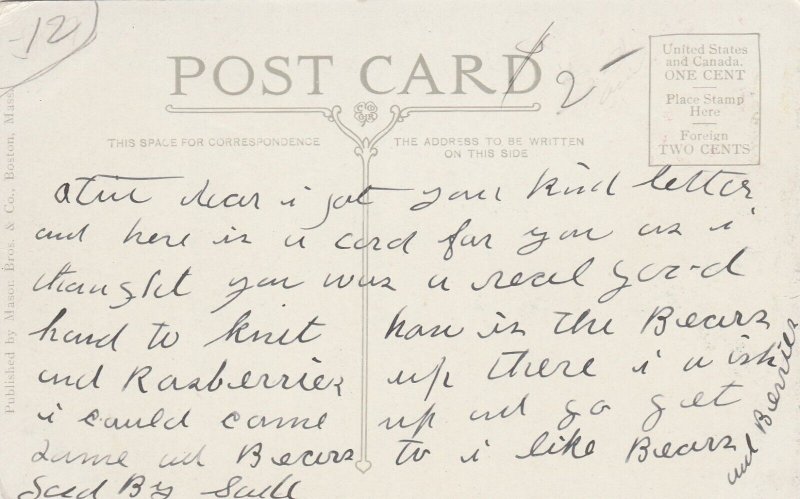 -12
POST CARD
2-
United States
and Canada.
ONE CENT
Place Stamp
Here
Foreign
TWO CENTS
THIS SPACE FOR CORRESPONDENCE
THE ADDRESS TO BE WRITTEN
ON THIS SIDE
Published by Mason Bros. & Co., Boston, Mass.
dear i got your kind letter
and here is a card for you as i
thought you was a real good
hand to knit how is the Bears
and Rasberries up there i wish
i could come up and go get
some and Bears to i like Bears
and Berries
By